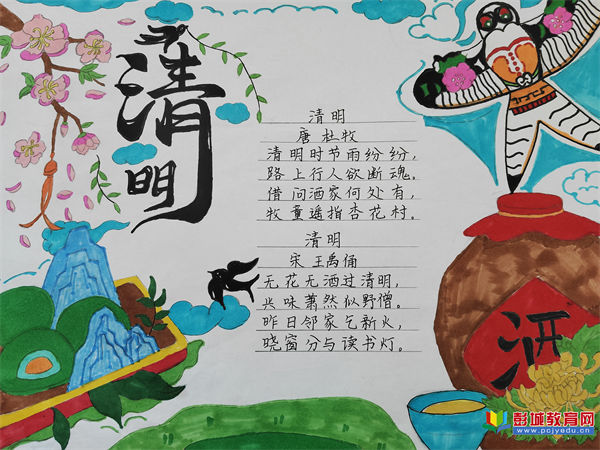 清明
清明
唐 杜牧
清明时节雨纷纷，
路上行人欲断魂。
借问酒家何处有，
牧童遥指杏花村。
清明
宋 王禹俑
无花无酒过清明，
兴味萧然似野僧。
昨日邻家乞新火，
晓窗分与读书灯。
酒
彭城教育网
www.pcjyedu.cn